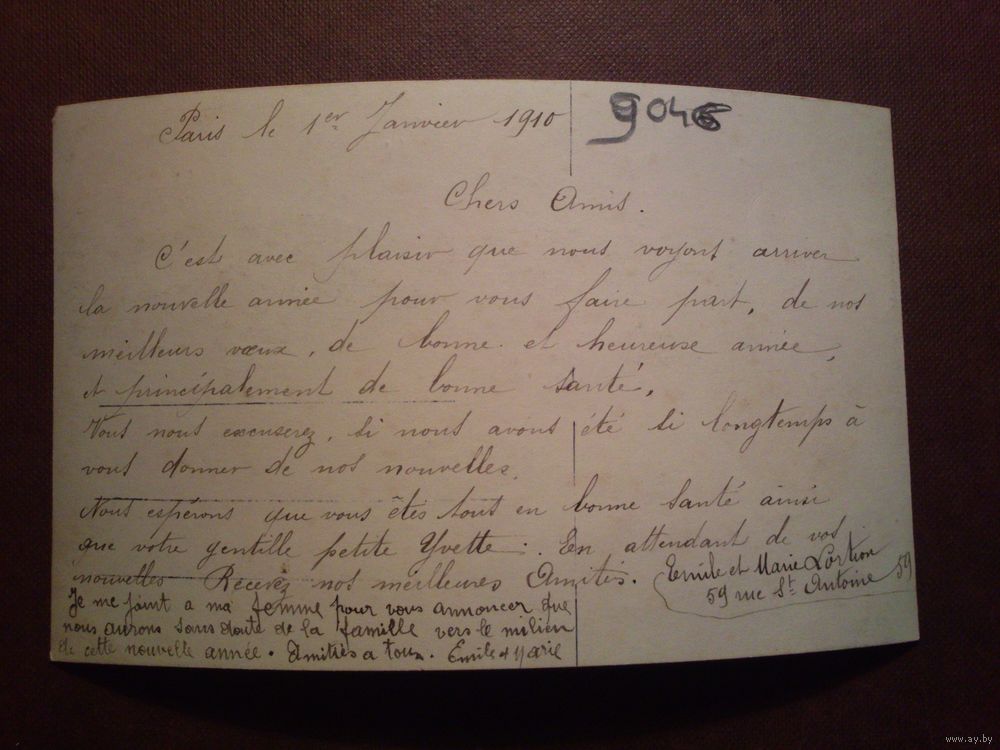 Paris le 1er Janvier 1910
9046
Chers Amis.
C'est avec plaisir que nous voyont arriver
la nouvelle année pour vous faire part, de nos
meilleurs vœux, de bonne et heureuse année,
et principalement de bonne santé.
Vous nous excuserez, si nous avons été si longtemps à
vous donner de nos nouvelles.
Nous espérons que vous êtes tout en bonne santé ainsi
que votre gentille petite Yvette. En attendant de vos
nouvelles Recevez nos meilleures Amitiés.
Emile et Marie
59 rue St Antoine 59
Je me joint a ma femme pour vous annoncer que
nous aurons sans doute de la famille vers le milieu
de cette nouvelle année. Amitiés a tous. Emile & Marie
www.ay.by